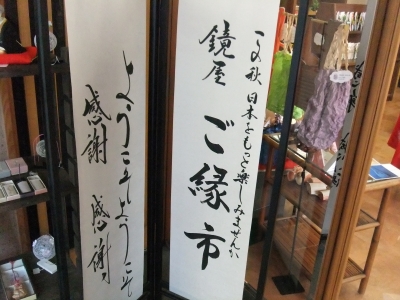 この秋 日本をもっと楽しみませんか
鏡屋 ご縁市
ようこそようこそ
感謝 感謝